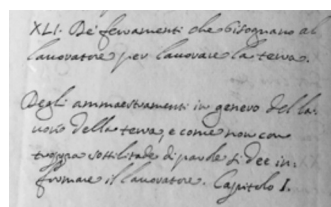 XLI. De' ferramenti che bisognano al
lavoratore per lavorare la terra.
Degli ammaestramenti in genero del la-
voro della terra, e come non con
troppa sottilitade di parole si dee in-
formare il lavoratore. Capitolo I.